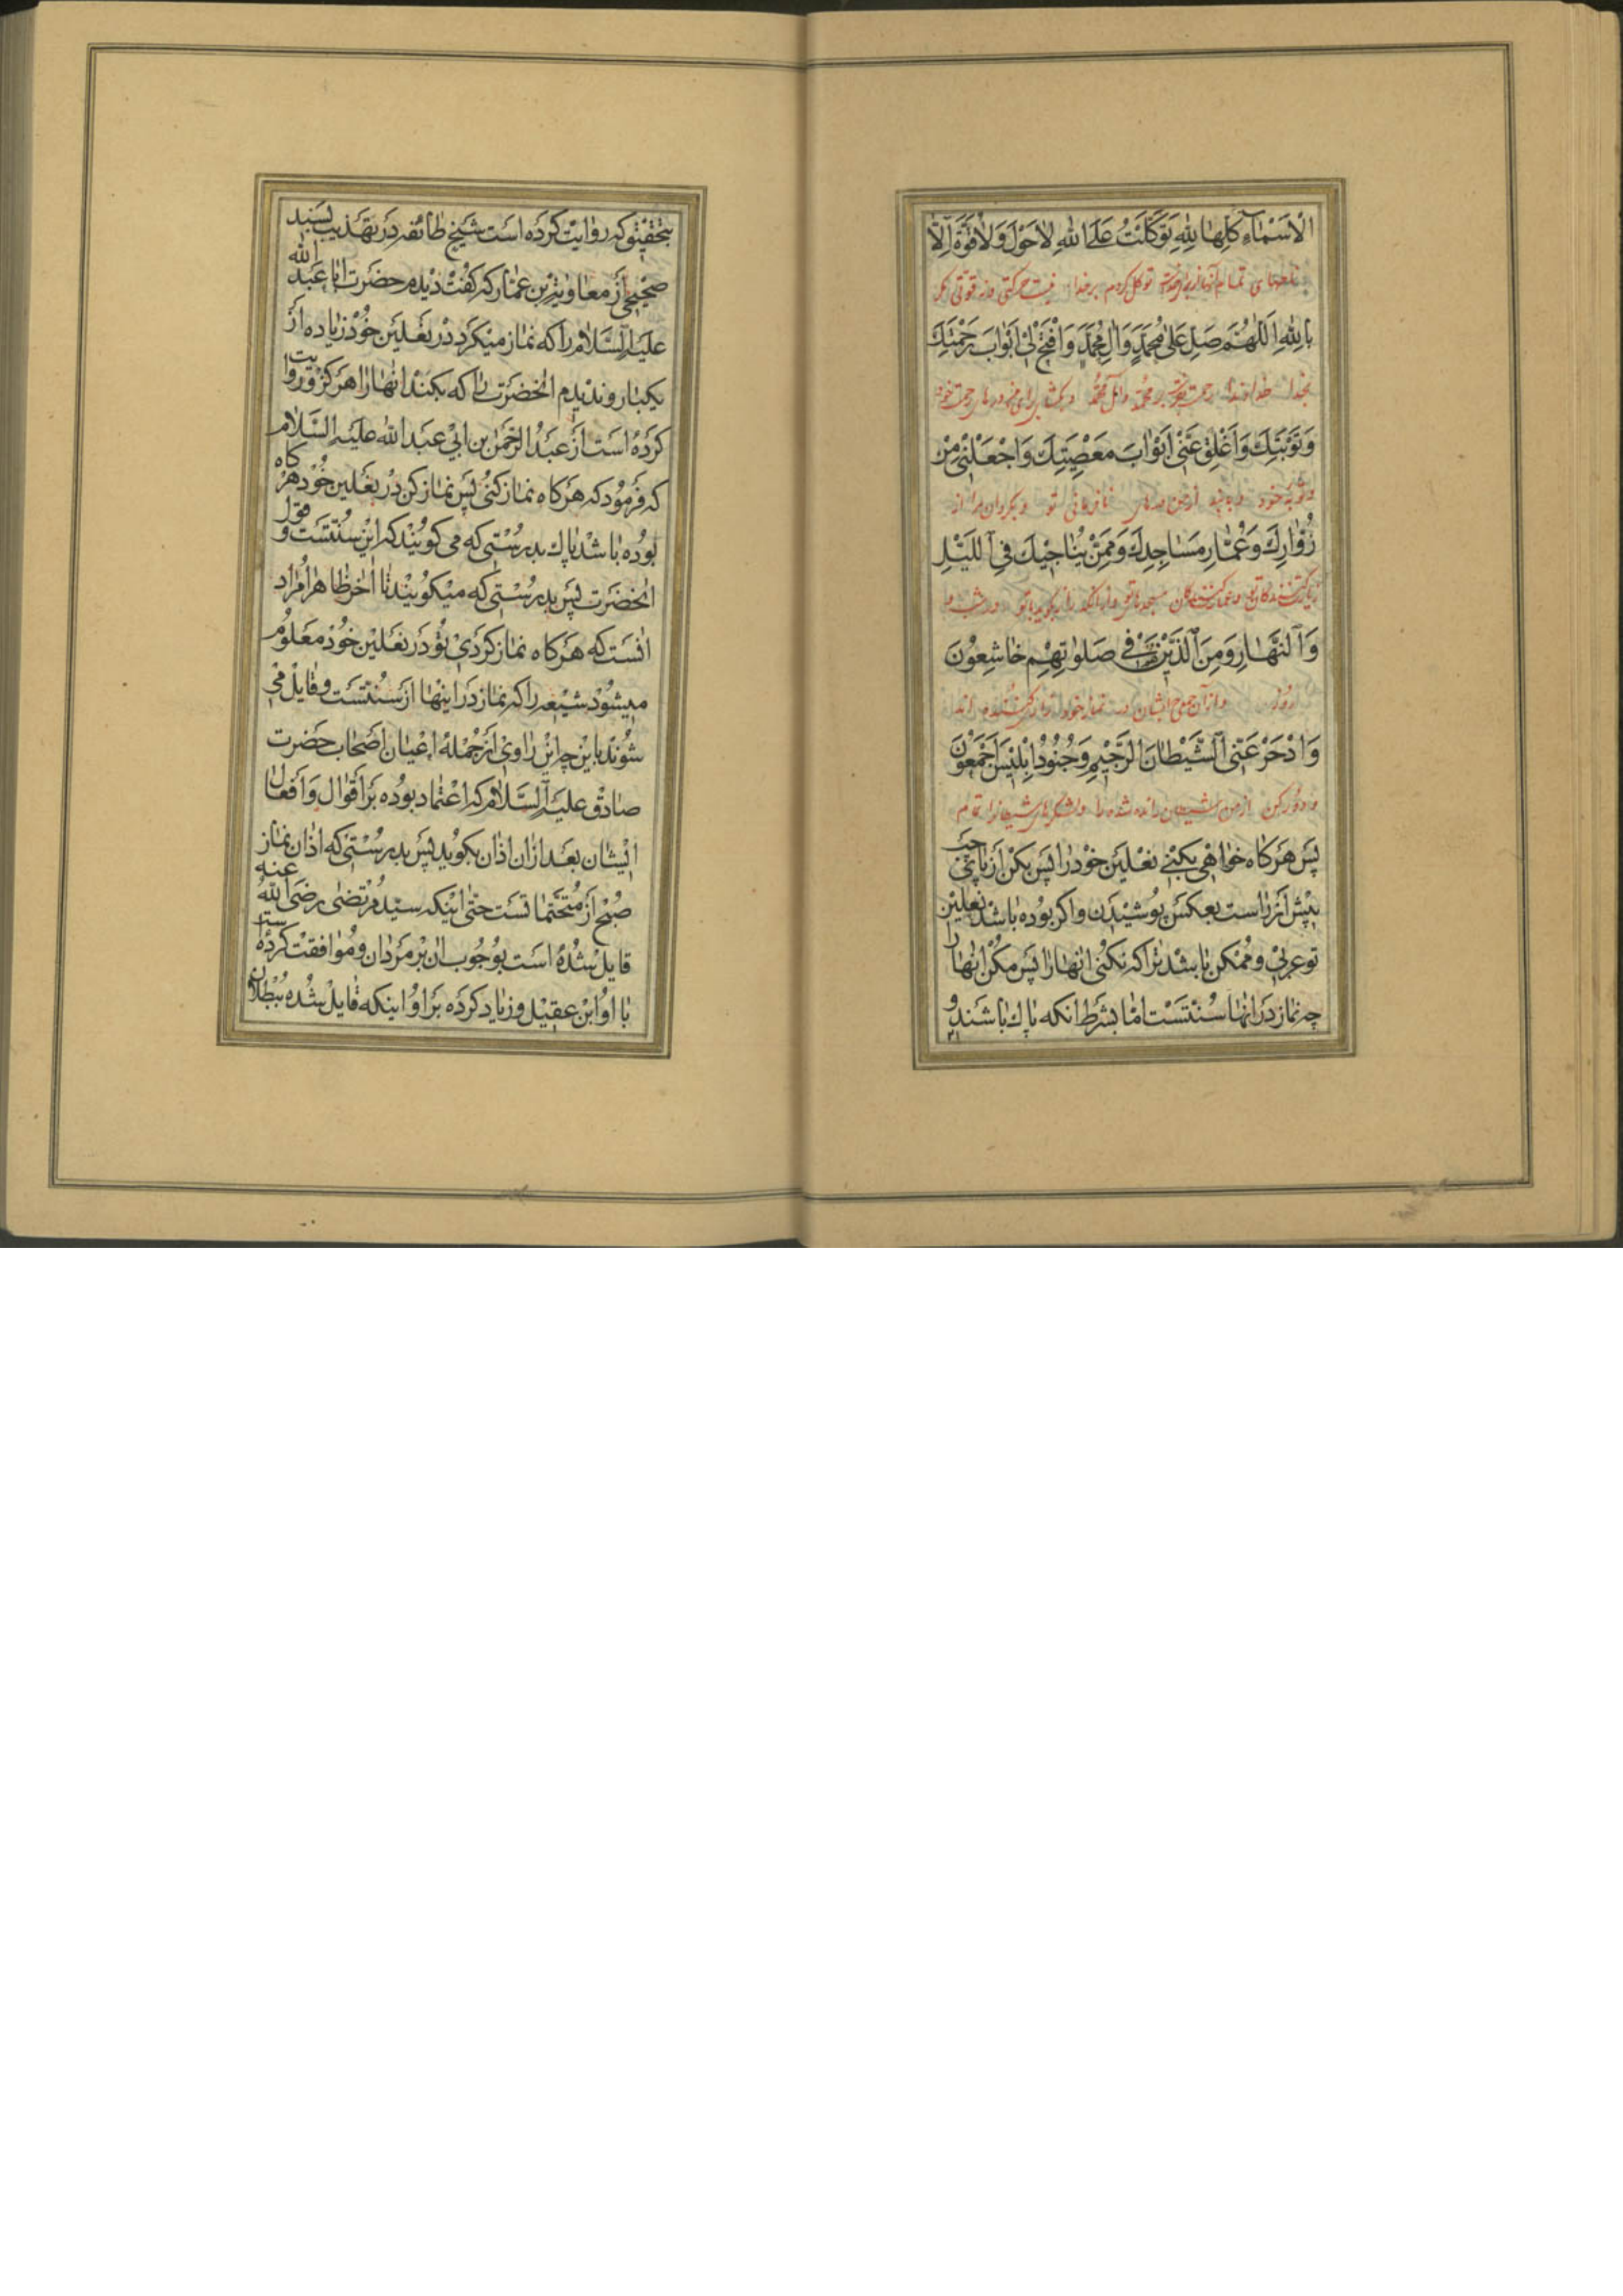 الْاَسْمٰاءِ كُلِّهٰا لِلّٰهِ تَوَكَّلْتُ عَلَى اللّٰهِ لٰاحَوْلَ وَلٰاقُوَّةَ اِلّٰا
تمام توکل کردم بر خدا نیست حرکتی و نه قوتی مگر
بِاللّٰهِ اَللّٰهُمَّ صَلِّ عَلىٰ مُحَمَّدٍ وَاٰلِ مُحَمَّدٍ وَافْتَحْ لِيْ اَبْوٰابَ رَحْمَتِكَ
بخدا خداوندا رحمت بر محمد وآل محمد و بگشا برای من درهای رحمت خود
وَتَوْبَتِكَ وَاَغْلِقْ عَنّىْ اَبْوٰابَ مَعْصِيَتِكَ وَاجْعَلْنىْ مِنْ
و توبه خود و از من درهای نافرمانی تو و بگردان مرا از
زُوّٰارِكَ وَعُمّٰارِ مَسٰاجِدِكَ وَمِمَّنْ يُنٰاجيْكَ فِي اللَّيْلِ
زیارت کنندگان تو و عمارت کنندگان مسجدهای تو در شب و
وَالنَّهٰارِ وَمِنَ الَّذيْنَ هُمْ فيْ صَلوٰاتِهِمْ خٰاشِعُوْنَ
روز و از آن جمع ایشان در نماز خود
وَادْحَرْ عَنّىِ الشَّيْطٰانَ الرَّجيْمِ وَجُنُوْدَ اِبْليْسَ اَجْمَعُوْنَ
و دور کن از من شیطان رانده شده را و لشکرهای شیطان را تمام
پس هرکاه خواهى بكنى نعلين خود را پس بكن از پاى چپ
پيش از راست بعكس پوشيدن واكر بوده باشد نعلين
تو عربى و ممكن باشد ترا كه نكنى انها را پس مكن انها را
چه نماز در انها سنتست امّا بشرط انكه پاك باشند و
بتحقيق كه روايت كرده است شيخ طائفه در تهذيب بسند
صحيح از معاوية بن عمار كه كفت ديدم حضرت ابا عبد الله
عليه السّلام را كه نماز ميكرد در نعلين خود زياده از
يكبار و نديدم انحضرت را كه بكند انها را هركز و روايت
كرده است از عبد الرّحمٰن بن ابى عبد الله عليه السّلام
كه فرمود كه هركاه نماز كنى پس نماز كن در نعلين خود هركاه
بوده باشد پاك بدرستى كه مى كويند كه اين سنتست و قول
انحضرت پس بدرستى كه ميكويند تا اٰخر ظاهرا مراد
انست كه هركاه نماز كردى تو در نعلين خود معلوم
ميشود شيعه را كه نماز در اينها از سنتست و قايل مى
شوند باين چه اين راوى از جمله اعيان اصحاب حضرت
صادق عليه السّلام كه اعتماد بوده بر اقوال و افعال
ايشان بعد از ان اذان بكويد پس بدرستى كه اذان نماز
صبح از متحتماتست حتّى اينكه سيّد مرتضى رضى الله عنه
قايل شده است بوجوب ان بر مردان و موافقت كرده است
با او ابن عقيل و زياد كرده بر او اينكه قايل شده ببطلان